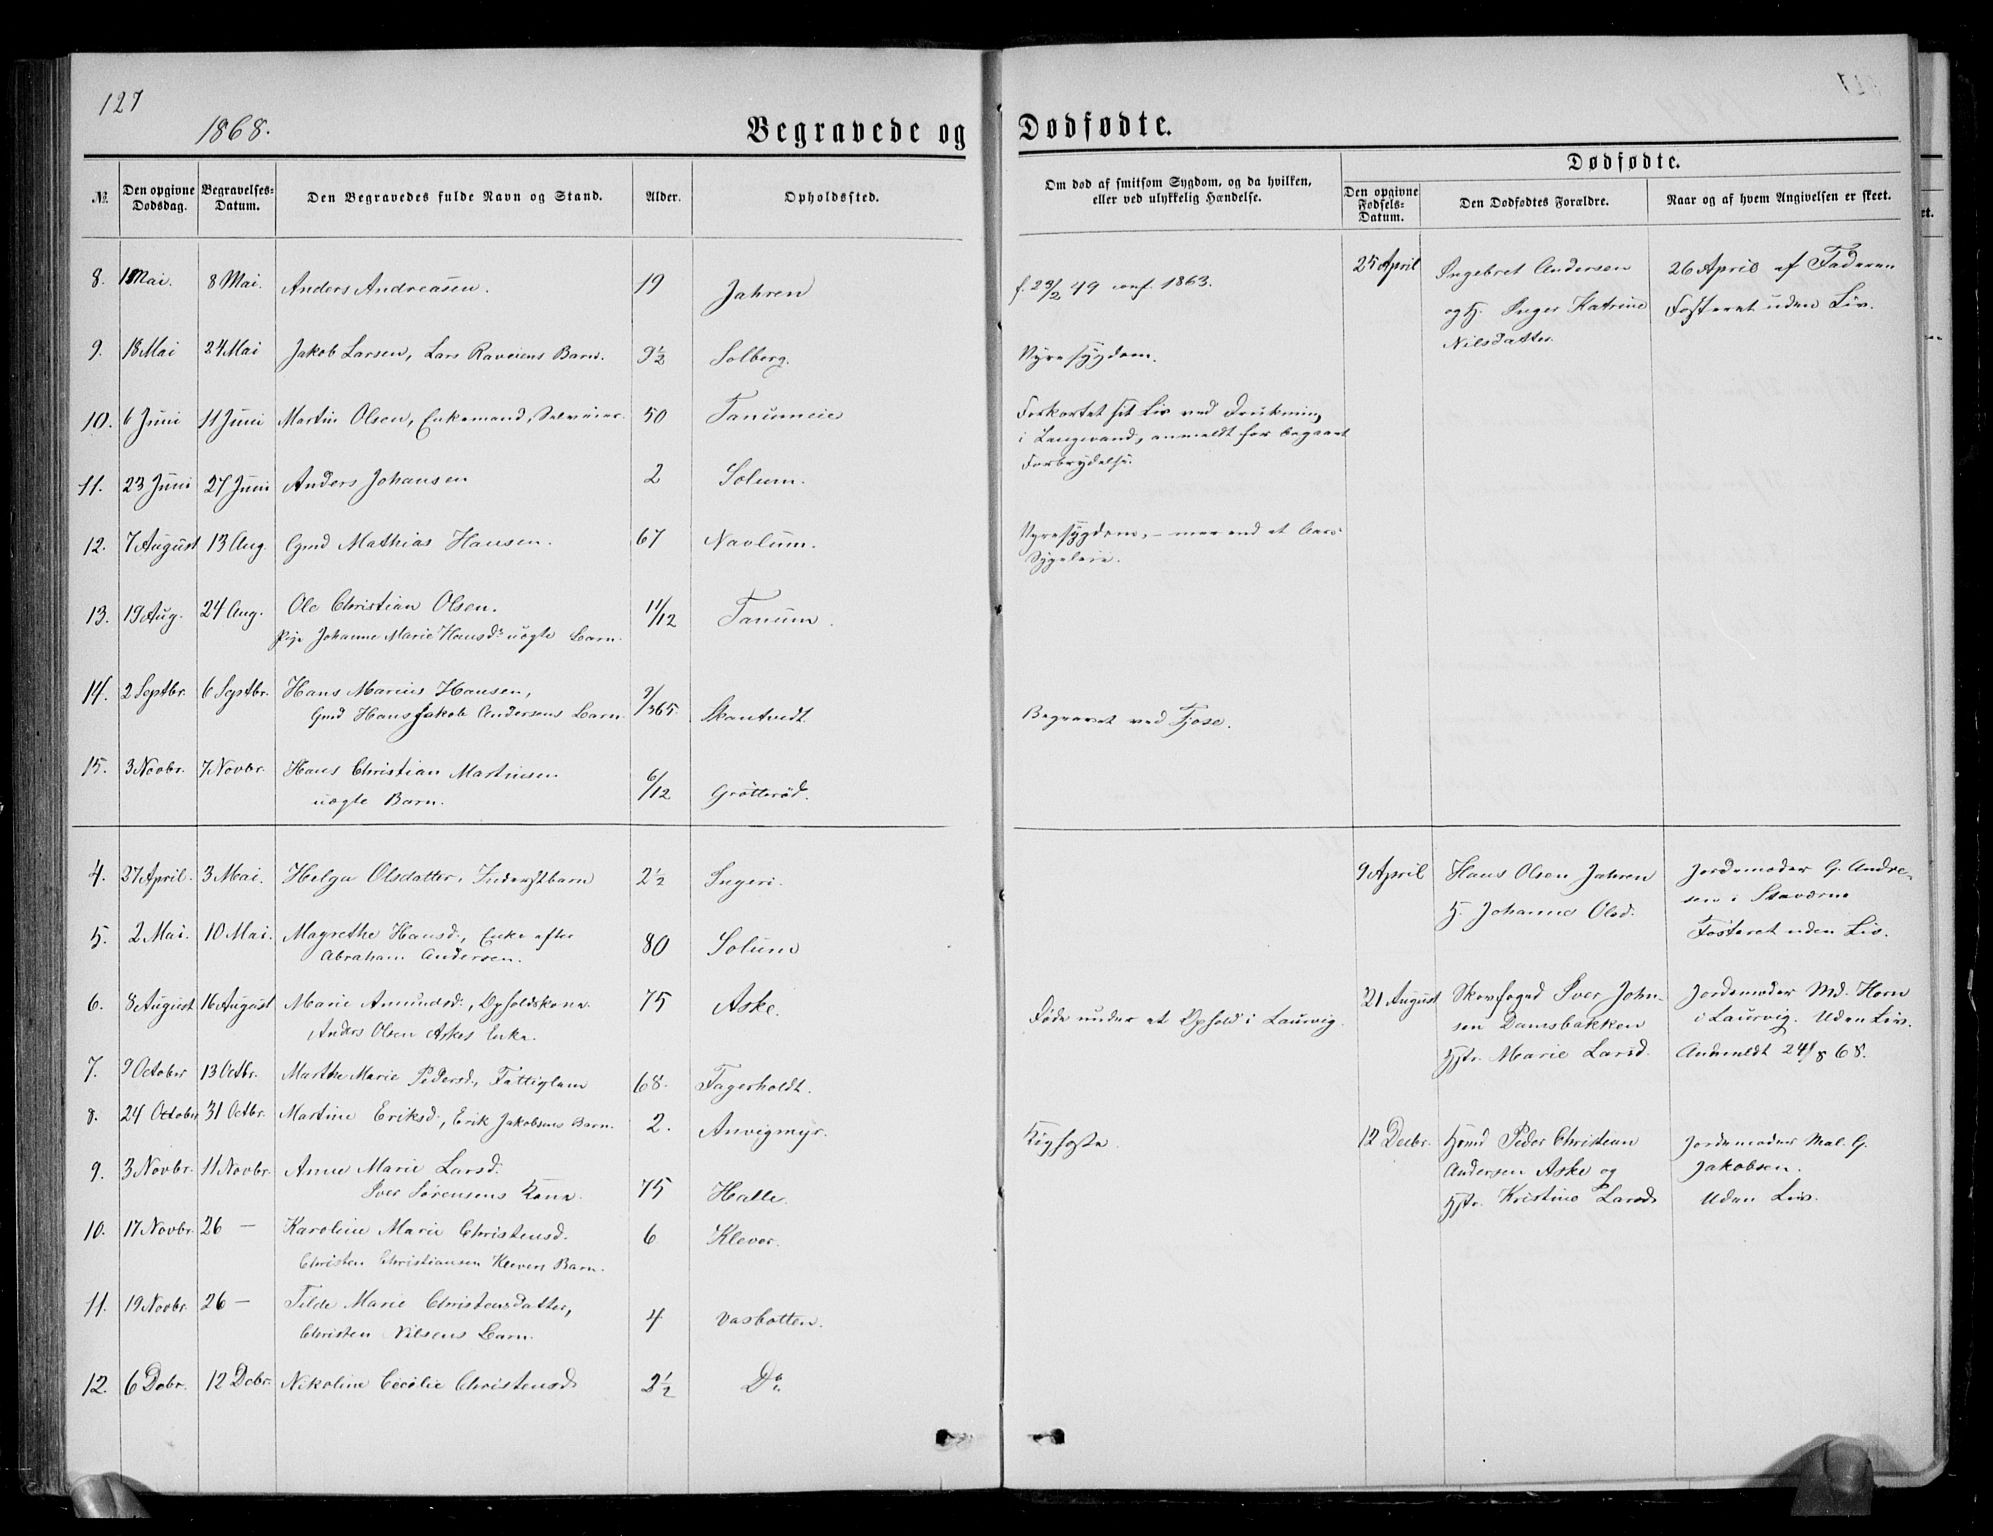 127
1868.
Begravede og Dødfødte.
Dødfødte.
№ Den opgivne Dødsdag. Begravelses-Datum. Den Begravedes fulde Navn og Stand. Alder. Opholdssted. Om død af smitsom Sygdom, og da hvilken, eller ved ulykkelig Hændelse. Den opgivne Fødsels-Datum. Den Dødfødtes Forældre. Naar og af hvem Angivelsen er skeet.
8. Mai. 8 Mai. Anders Andreasen. 19 Jahren f. 23/2 49 conf. 1863. 25 April Ingebret Andersen 26 April af Faderen
og H. Inger Katrine Fosteret uden Liv.
Nilsdatter
9. 18 Mai 24 Mai Jakob Larsen, Lars Raveiens Barn. 9½ Solberg. Nyresygdom.
10. 6 Juni 11 Juni Martin Olsen, Enkemand, Selveier. 50 Tanumeie Forkortet sit Liv ved Drukning
i Langevand, anmeldt for begaaet
Forbrydelse.
11. 23 Juni 27 Juni Anders Johansen 2 Solum.
12. 7 August 13 Aug. Gmd Mathias Hansen. 67 Navlum. Nyresygdom, – mer end et Aars
Sygeleie.
13. 19 Aug. 24 Aug. Ole Christian Olsen. 11/12 Tanum.
Pige Johanne Marie Hansd. uægte Barn.
14. 2 Septbr. 6 Septbr. Hans Marius Hansen, 9/365 Skantvedt Begravet ved Tjose.
Gmd Hans Jakob Andersens Barn.
15. 3 Novbr. 7 Novbr. Hans Christian Martinsen 6/12 Grøtterød.
uægte Barn.
4. 27 April. 3 Mai. Helga Olsdatter, Inderstbarn 2½ Ingeri. 9 April Hans Olsen Jahren Jordemoder G. Andre-
H. Johanne Olsd. sen i Staværne
Fosteret uden Liv.
5. 2 Mai. 10 Mai. Magrethe Hansd., Enke efter 80 Solum
Abraham Andersen.
6. 8 August 16 August Marie Amundsd., Opholdskone 75 Aske. Føde under et Ophold i Laurvig. 21 August Skovfoged Iver John- Jordemoder Md. Horn
Anders Olsen Askes Enke. sen Damsbakken i Laurvig. Uden Liv.
Hstr. Marie Larsd. Anmeldt 24/8 68.
7. 9 October 13 Octbr. Marthe Marie Pedersd., Fattiglem 68. Fagerholdt.
8. 24 October 31 Octbr. Martine Eriksd., Erik Jakobsens Barn. 2. Anvigmyr. Kighoste. 12 Decbr. Hsmd Peder Christian Jordemoder Mal. G.
Andersen Aske og Jakobsen.
Hstr. Kristine Larsd. Uden Liv.
9. 3 Novbr. 11 Novbr. Anne Marie Larsd. 75 Halle.
Iver Sørensens Kone.
10. 17 Novbr. 26 — Karoline Marie Christensd. 6 Klever.
Christen Christiansen Klevers Barn.
11. 19 Novbr. 26 — Tilde Marie Christensdatter, 4 Vasbotten.
Christen Nilsens Barn.
12. 6 Debr. 12 Debr. Nikoline Cecilie Christensd. 2½ Do.